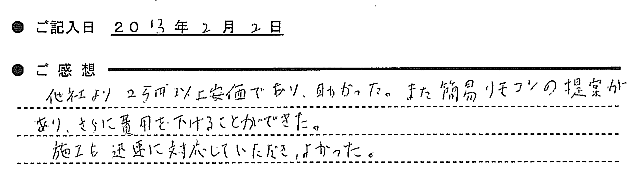 ● ご記入日 2013年2月2日
● ご感想
他社より2万円以上安価であり、助かった。また簡易リモコンの提案が
あり、さらに費用を下げることができた。
施工も迅速に対応していただき、よかった。